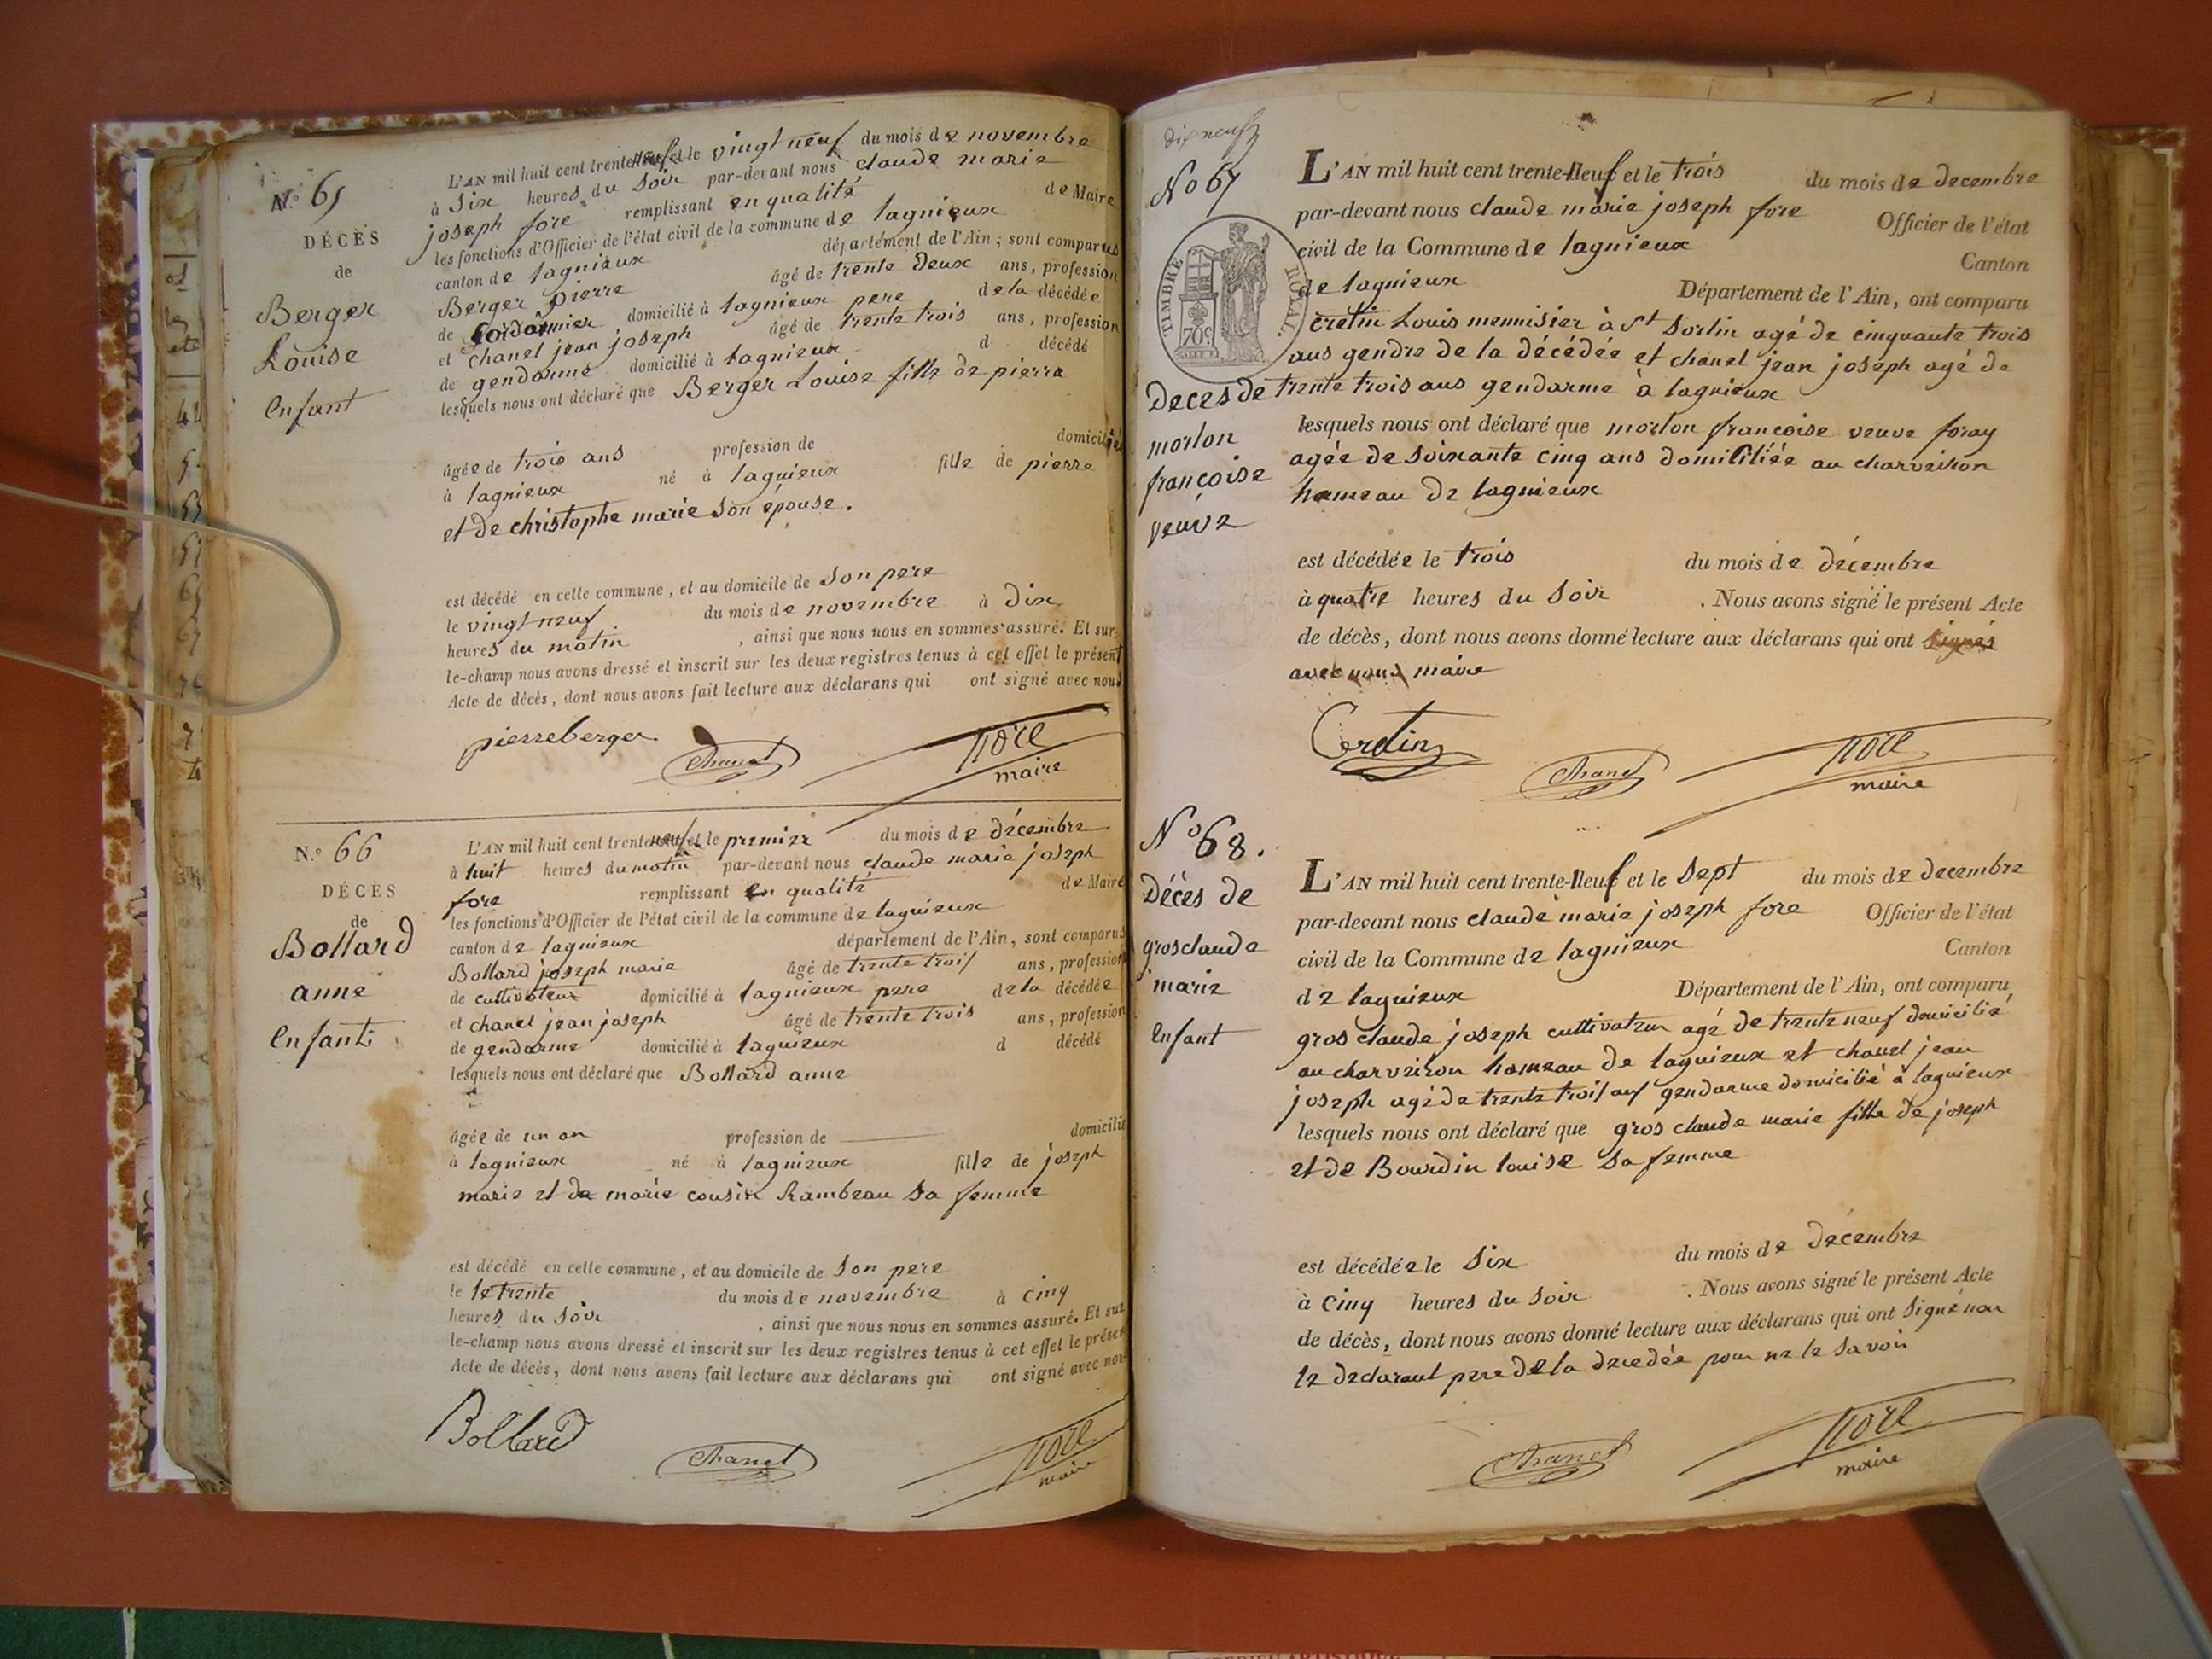 N.º 65
DÉCÈS
de
Berger
Louise
Enfant
L'AN mil huit cent trente neuf et le vingt neuf du mois de novembre
à Six heures du Soir par-devant nous claude marie
joseph fore remplissant en qualité de Maire
les fonctions d'Officier de l'état civil de la commune de lagnieux
canton de lagnieux département de l'Ain ; sont comparus
Berger pierre âgé de trente Deux ans, profession
de Cordonnier domicilié à lagnieux pere de la décédée
et chanel jean joseph âgé de trente trois ans, profession
de gendarme domicilié à lagnieux d décédé
lesquels nous ont déclaré que Berger Louise fille de pierre
âgée de trois ans profession de domicilié
à lagnieux né à lagnieux fille de pierre
et de christophe marie son épouse.
est décédé en cette commune, et au domicile de son pere
le vingt neuf du mois de novembre à dix
heures du matin , ainsi que nous nous en sommes assuré. Et sur-
le-champ nous avons dressé et inscrit sur les deux registres tenus à cet effet le présent
Acte de décès, dont nous avons fait lecture aux déclarans qui ont signé avec nous
pierre berger Chanel fore
maire
N.º 66
DÉCÈS
de
Bollard
anne
Enfant
L'AN mil huit cent trente neuf et le premier du mois de décembre
à huit heures du matin par-devant nous claude marie joseph
fore remplissant en qualité de Maire
les fonctions d'Officier de l'état civil de la commune de lagnieux
canton de lagnieux département de l'Ain, sont comparus
Bollard joseph marie âgé de trente trois ans, profession
de cultivateur domicilié à lagnieux pere de la décédée
et chanel jean joseph âgé de trente trois ans, profession
de gendarme domicilié à lagnieux d décédé
lesquels nous ont déclaré que Bollard anne
âgée de un an profession de domicilié
à lagnieux né à lagnieux fille de joseph
marie et de marie cousin Rambeau sa femme
est décédé en cette commune, et au domicile de son pere
le le trente du mois de novembre à cinq
heures du soir , ainsi que nous nous en sommes assuré. Et sur
le-champ nous avons dressé et inscrit sur les deux registres tenus à cet effet le présent
Acte de décès, dont nous avons fait lecture aux déclarans qui ont signé avec nous
Bollard Chanel fore
maire
dix neuf
No 67
TIMBRE ROYAL
70 c.
Deces de
morlon
françoise
veuve
L'AN mil huit cent trente-neuf et le trois du mois de decembre
par-devant nous claude marie joseph fore Officier de l'état
civil de la Commune de lagnieux Canton
de lagnieux Département de l'Ain, ont comparu
cretin Louis mennisier à St Sorlin agé de cinquante trois
ans gendre de la décédée et chanel jean joseph agé de
trente trois ans gendarme à lagnieux
lesquels nous ont déclaré que morlon françoise veuve foray
agée de soixante cinq ans domiciliée au charveiron
hameau de lagnieux
est décédée le trois du mois de décembre
à quatre heures du soir . Nous avons signé le présent Acte
de décès, dont nous avons donné lecture aux déclarans qui ont signés
avec nous maire
Cretin Chanel fore
maire
No 68.
Décès de
grosclaude
marie
Enfant
L'AN mil huit cent trente-neuf et le sept du mois de decembre
par-devant nous claude marie joseph fore Officier de l'état
civil de la Commune de lagnieux Canton
de lagnieux Département de l'Ain, ont comparu
gros claude joseph cultivateur agé de trente neuf domicilié
au charveiron hameau de lagnieux et chanel jean
joseph agé de trente trois ans gendarme domicilié à lagnieux
lesquels nous ont déclaré que gros claude marie fille de joseph
et de Bourdin louise sa femme
est décédée le six du mois de décembre
à cinq heures du soir . Nous avons signé le présent Acte
de décès, dont nous avons donné lecture aux déclarans qui ont signé non
le declarant pere de la decedée pour ne le savoir
Chanel fore
maire